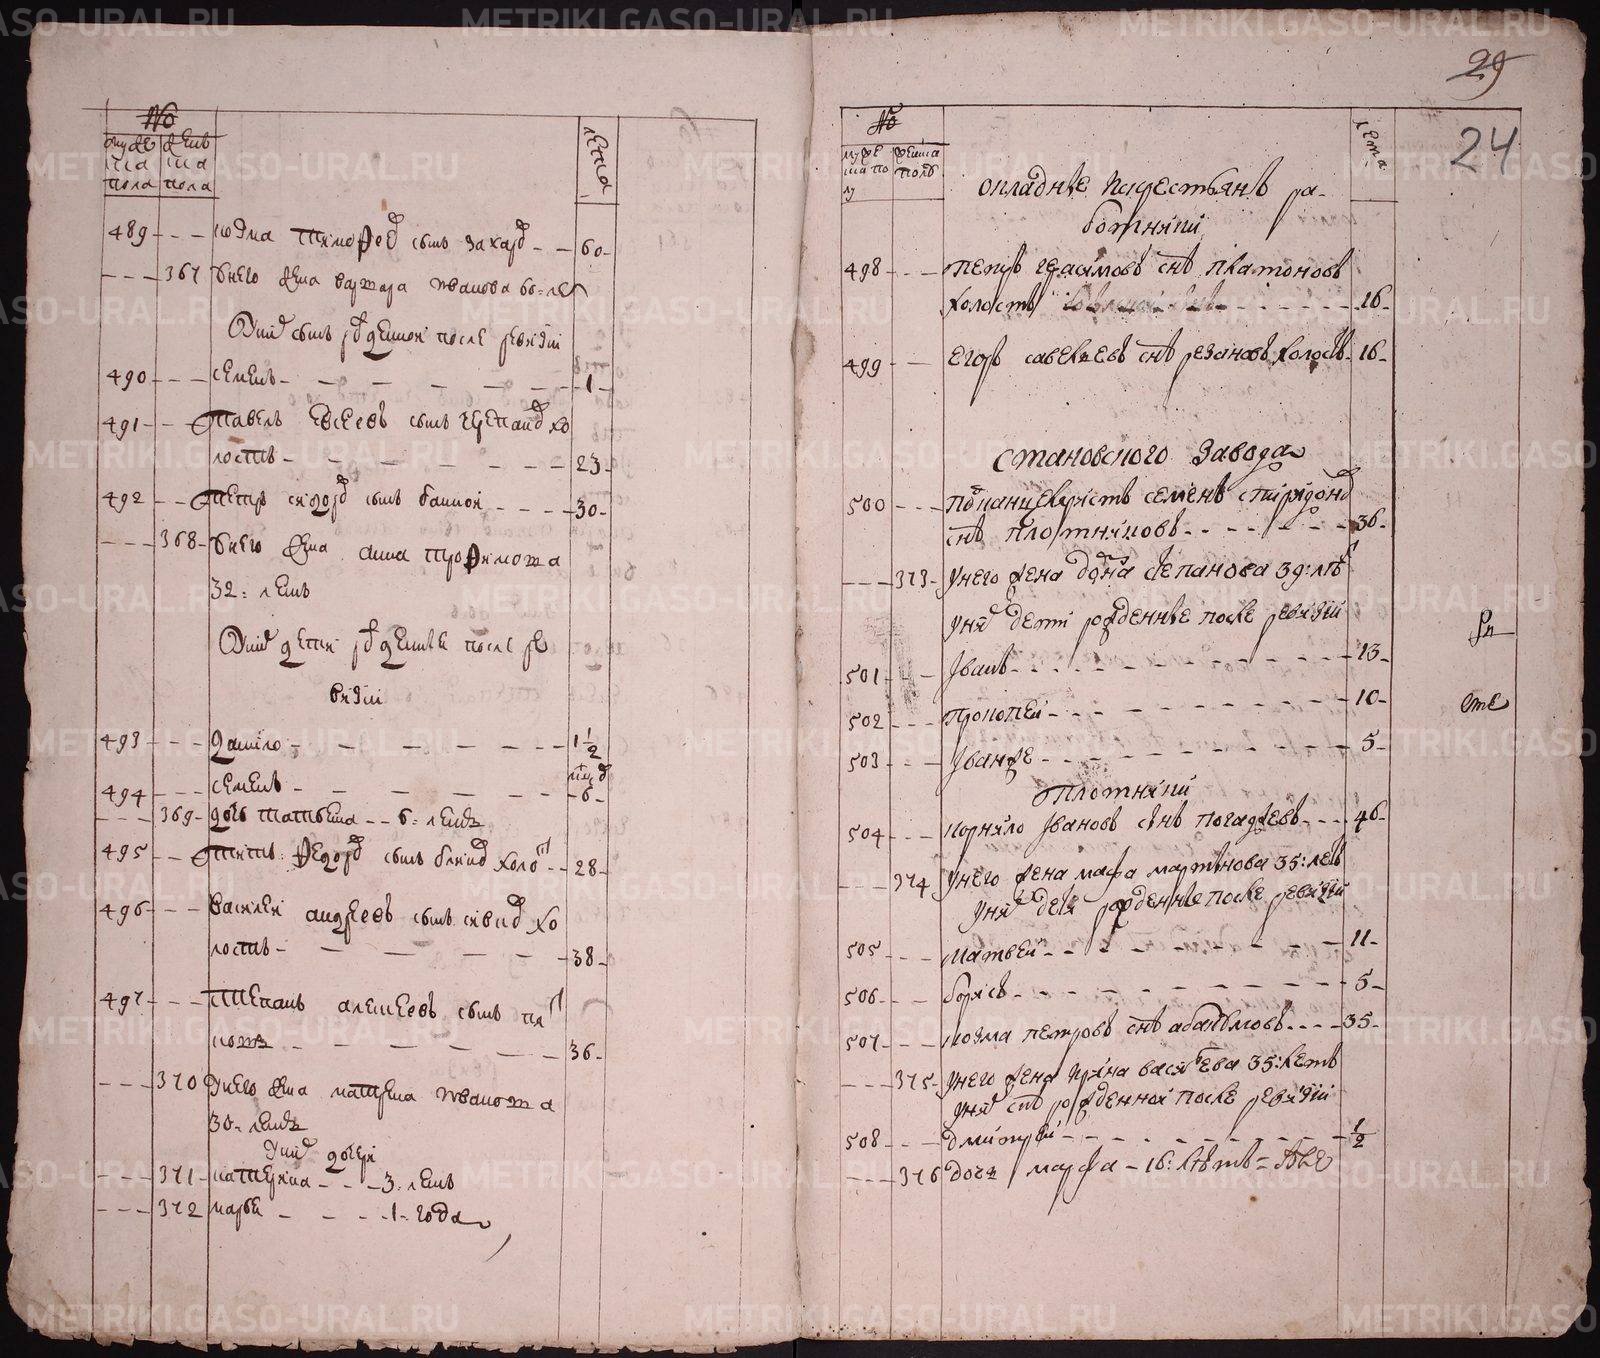 №
муже
ска
пола
жен
ска
пола
лета
489 - - - козма тимофеев сынъ захаров - - 60 -
- - - 367 унего жена варвара иванова 60 = лет
Унихъ сынъ рожденной после ревизии
490 - - - семенъ - - - - - - 1 -
491 - - - павелъ евсеевъ сынъ черепанов хо
лостъ - - - - - - - 23 -
492 - - - петръ сидоров сынъ - - - - 30 -
- - - 368 - унего жена анна трофимова
32 = летъ
Унихъ дети рожденные после ре
визии
493 - - - данило - - - - - 1 1/2
494 - - - семенъ - - - - - - 6 -
- - - 369 - дочь татьяна - - 6 = летъ
495 - - - титъ федоров сынъ блинов холо - - 28 -
496 - - - василей андреевъ сынъ хо
лостъ - - - - - 38 -
497 - - - степанъ алексеевъ сынъ
- - - - - 36 -
- - - 370 унего жена катерина иванова
30 = летъ
Унихъ дочери
- - - 371 - катерина - - - 3 = летъ
- - - 372 марья - - - - 1 = года
29
24
№
муже
ска по
лу
женска
полъ
лета
окладные ис крестьянъ ра-
ботники
498 - - - петръ герасимовъ снъ платоновъ
холостъ - - - - - - 16 -
499 - - егоръ савельевъ снъ резановъ холостъ - 16 -
становского завода
500 - - - потканцеляристъ семенъ спиридонов
снъ плотниковъ - - - - - - - 36 -
- - - 373 - унего жена домна степанова 39: летъ
унихъ дети рожденные после ревизии
501 - - - Иванъ - - - - - - - - 13 -
502 - - - прокопей - - - - - - - 10 -
503 - - - Иванже - - - - - - - 5 -
плотники
504 - - - корнило Ивановъ снъ погадаевъ - - - - 46 -
- - - 374 унего жена марфа мартынова 35: летъ
унихъ дети рожденные после ревизии
505 - - - матвей - - - - - - - 11 -
506 - - - борисъ - - - - - - - 5 -
507 - - - козма петровъ снъ абакумовъ - - - - 35 -
- - - 375 - унего жена ирина васильева 35: летъ
унихъ снъ рожденной после ревизии
508 - - - дмитрей - - - - - - - 1/2
- - - 376 дочь марфа - 16: летъ =